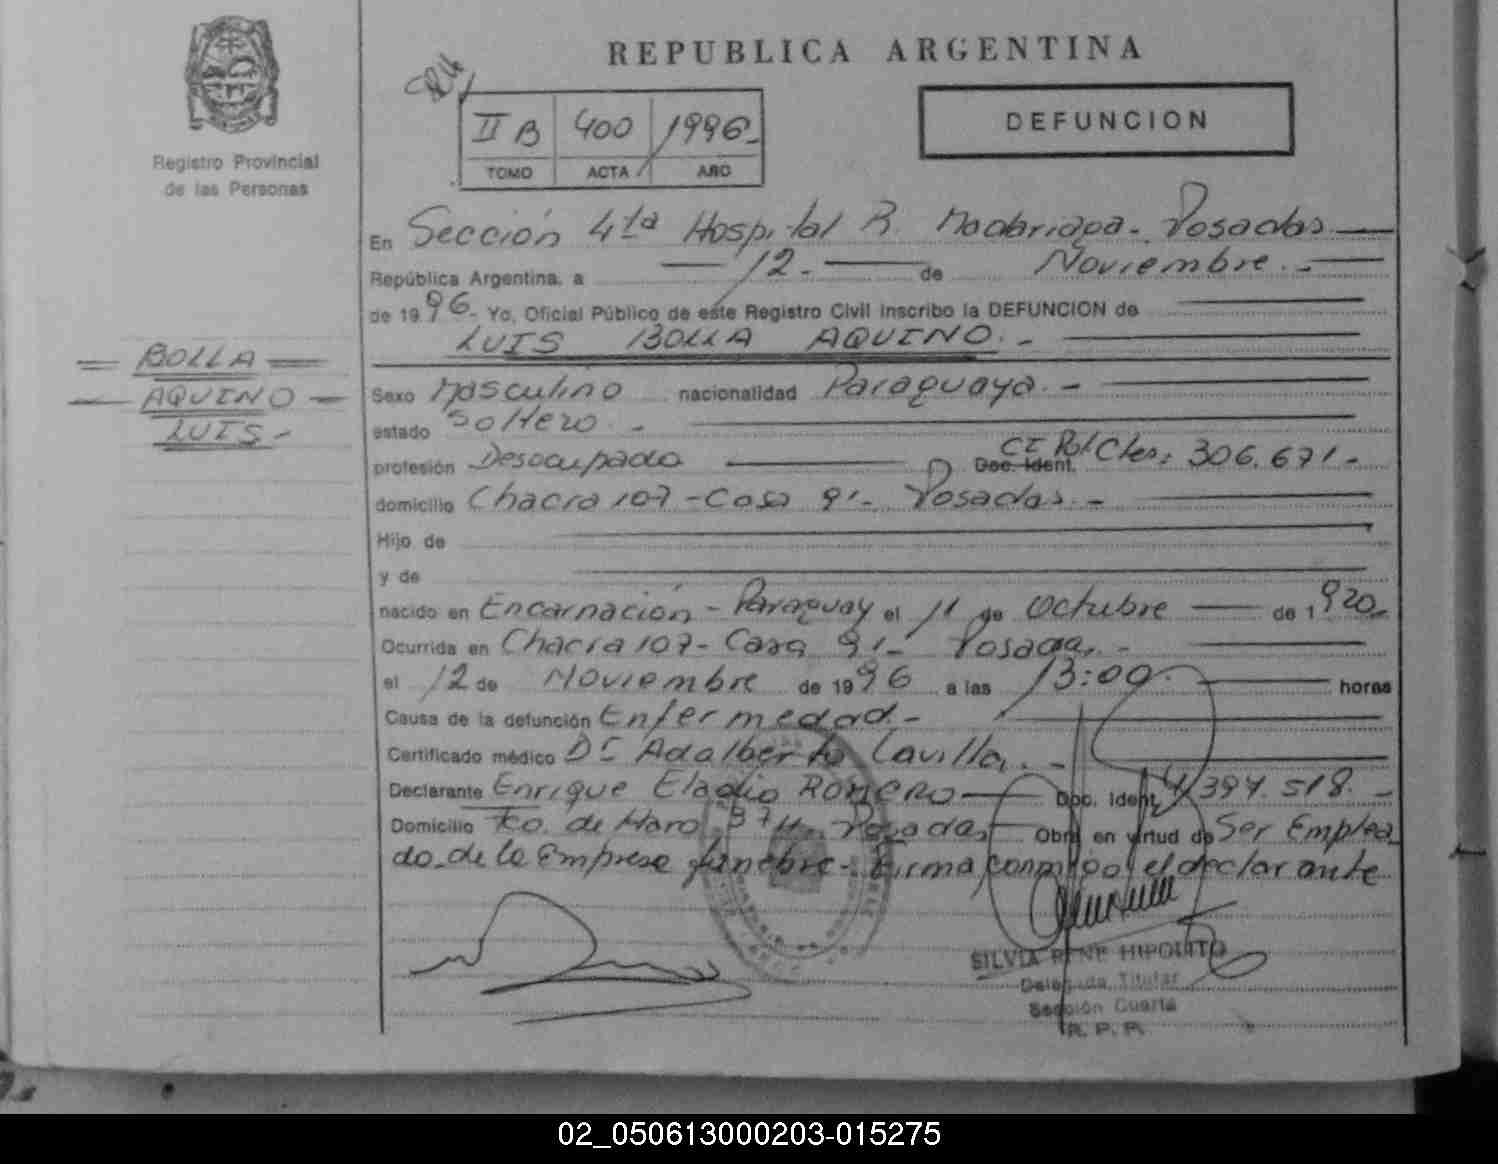 REPUBLICA ARGENTINA
II B 400 1996.-
TOMO ACTA AÑO
DEFUNCION
Registro Provincial
de las Personas
En Sección 4ta Hospital R. Madariaga. Posadas
República Argentina, a 12.- de Noviembre.-
de 1996.- Yo, Oficial Público de este Registro Civil inscribo la DEFUNCION de
LUIS BOLLA AQUINO.-
BOLLA
AQUINO
LUIS.-
Sexo Masculino nacionalidad Paraguaya.-
estado Soltero.-
profesión Desocupado Doc. Ident. CI Pol Ctes: 306.671.-
domicilio Chacra 107 - Casa 91.- Posadas.-
Hijo de
y de
nacido en Encarnación - Paraguay el 11 de Octubre de 1920.-
Ocurrida en Chacra 107 - Casa 91.- Posadas.-
el 12 de Noviembre de 1996 a las 13:00.- horas
Causa de la defunción Enfermedad.-
Certificado médico Dr Adalberto Cavilla.-
Declarante Enrique Eladio ROMERO Doc. Ident. 4.397.518.-
Domicilio Fco. de Haro Posadas Obra en virtud de Ser Emplea
do de la Empresa fúnebre.- Firma conmigo el declarante
SILVIA RENE HIPOLITO
Delegada Titular
Sección Cuarta
R. P. P.
02_050613000203-015275